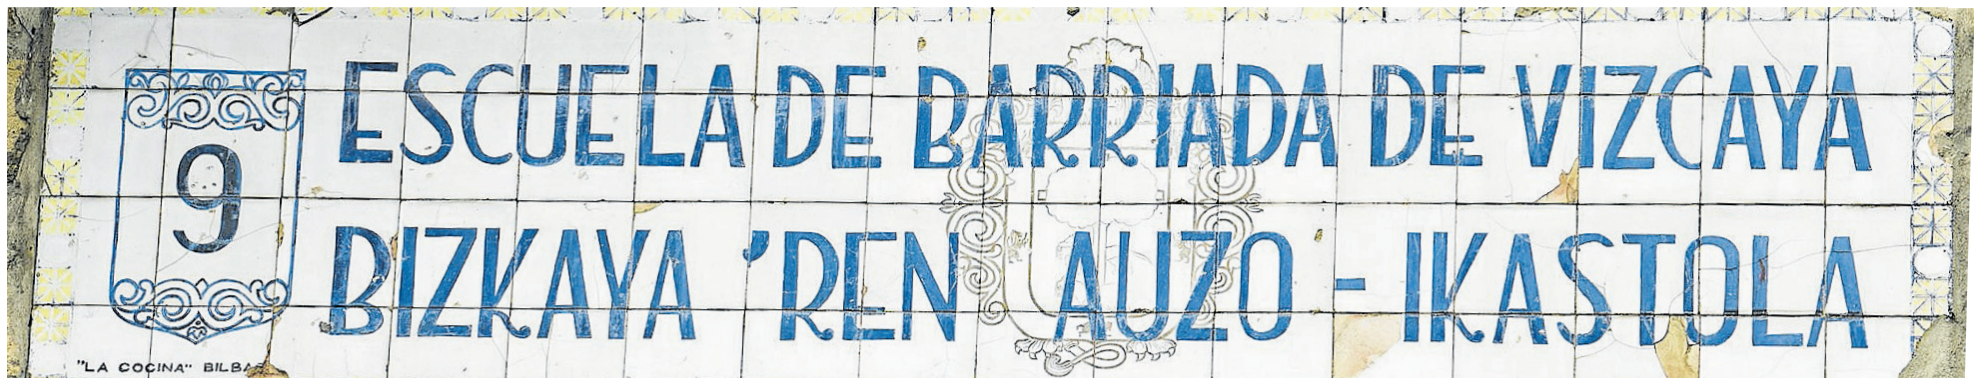 9
ESCUELA DE BARRIADA DE VIZCAYA
BIZKAYA 'REN AUZO - IKASTOLA
"LA COCINA"